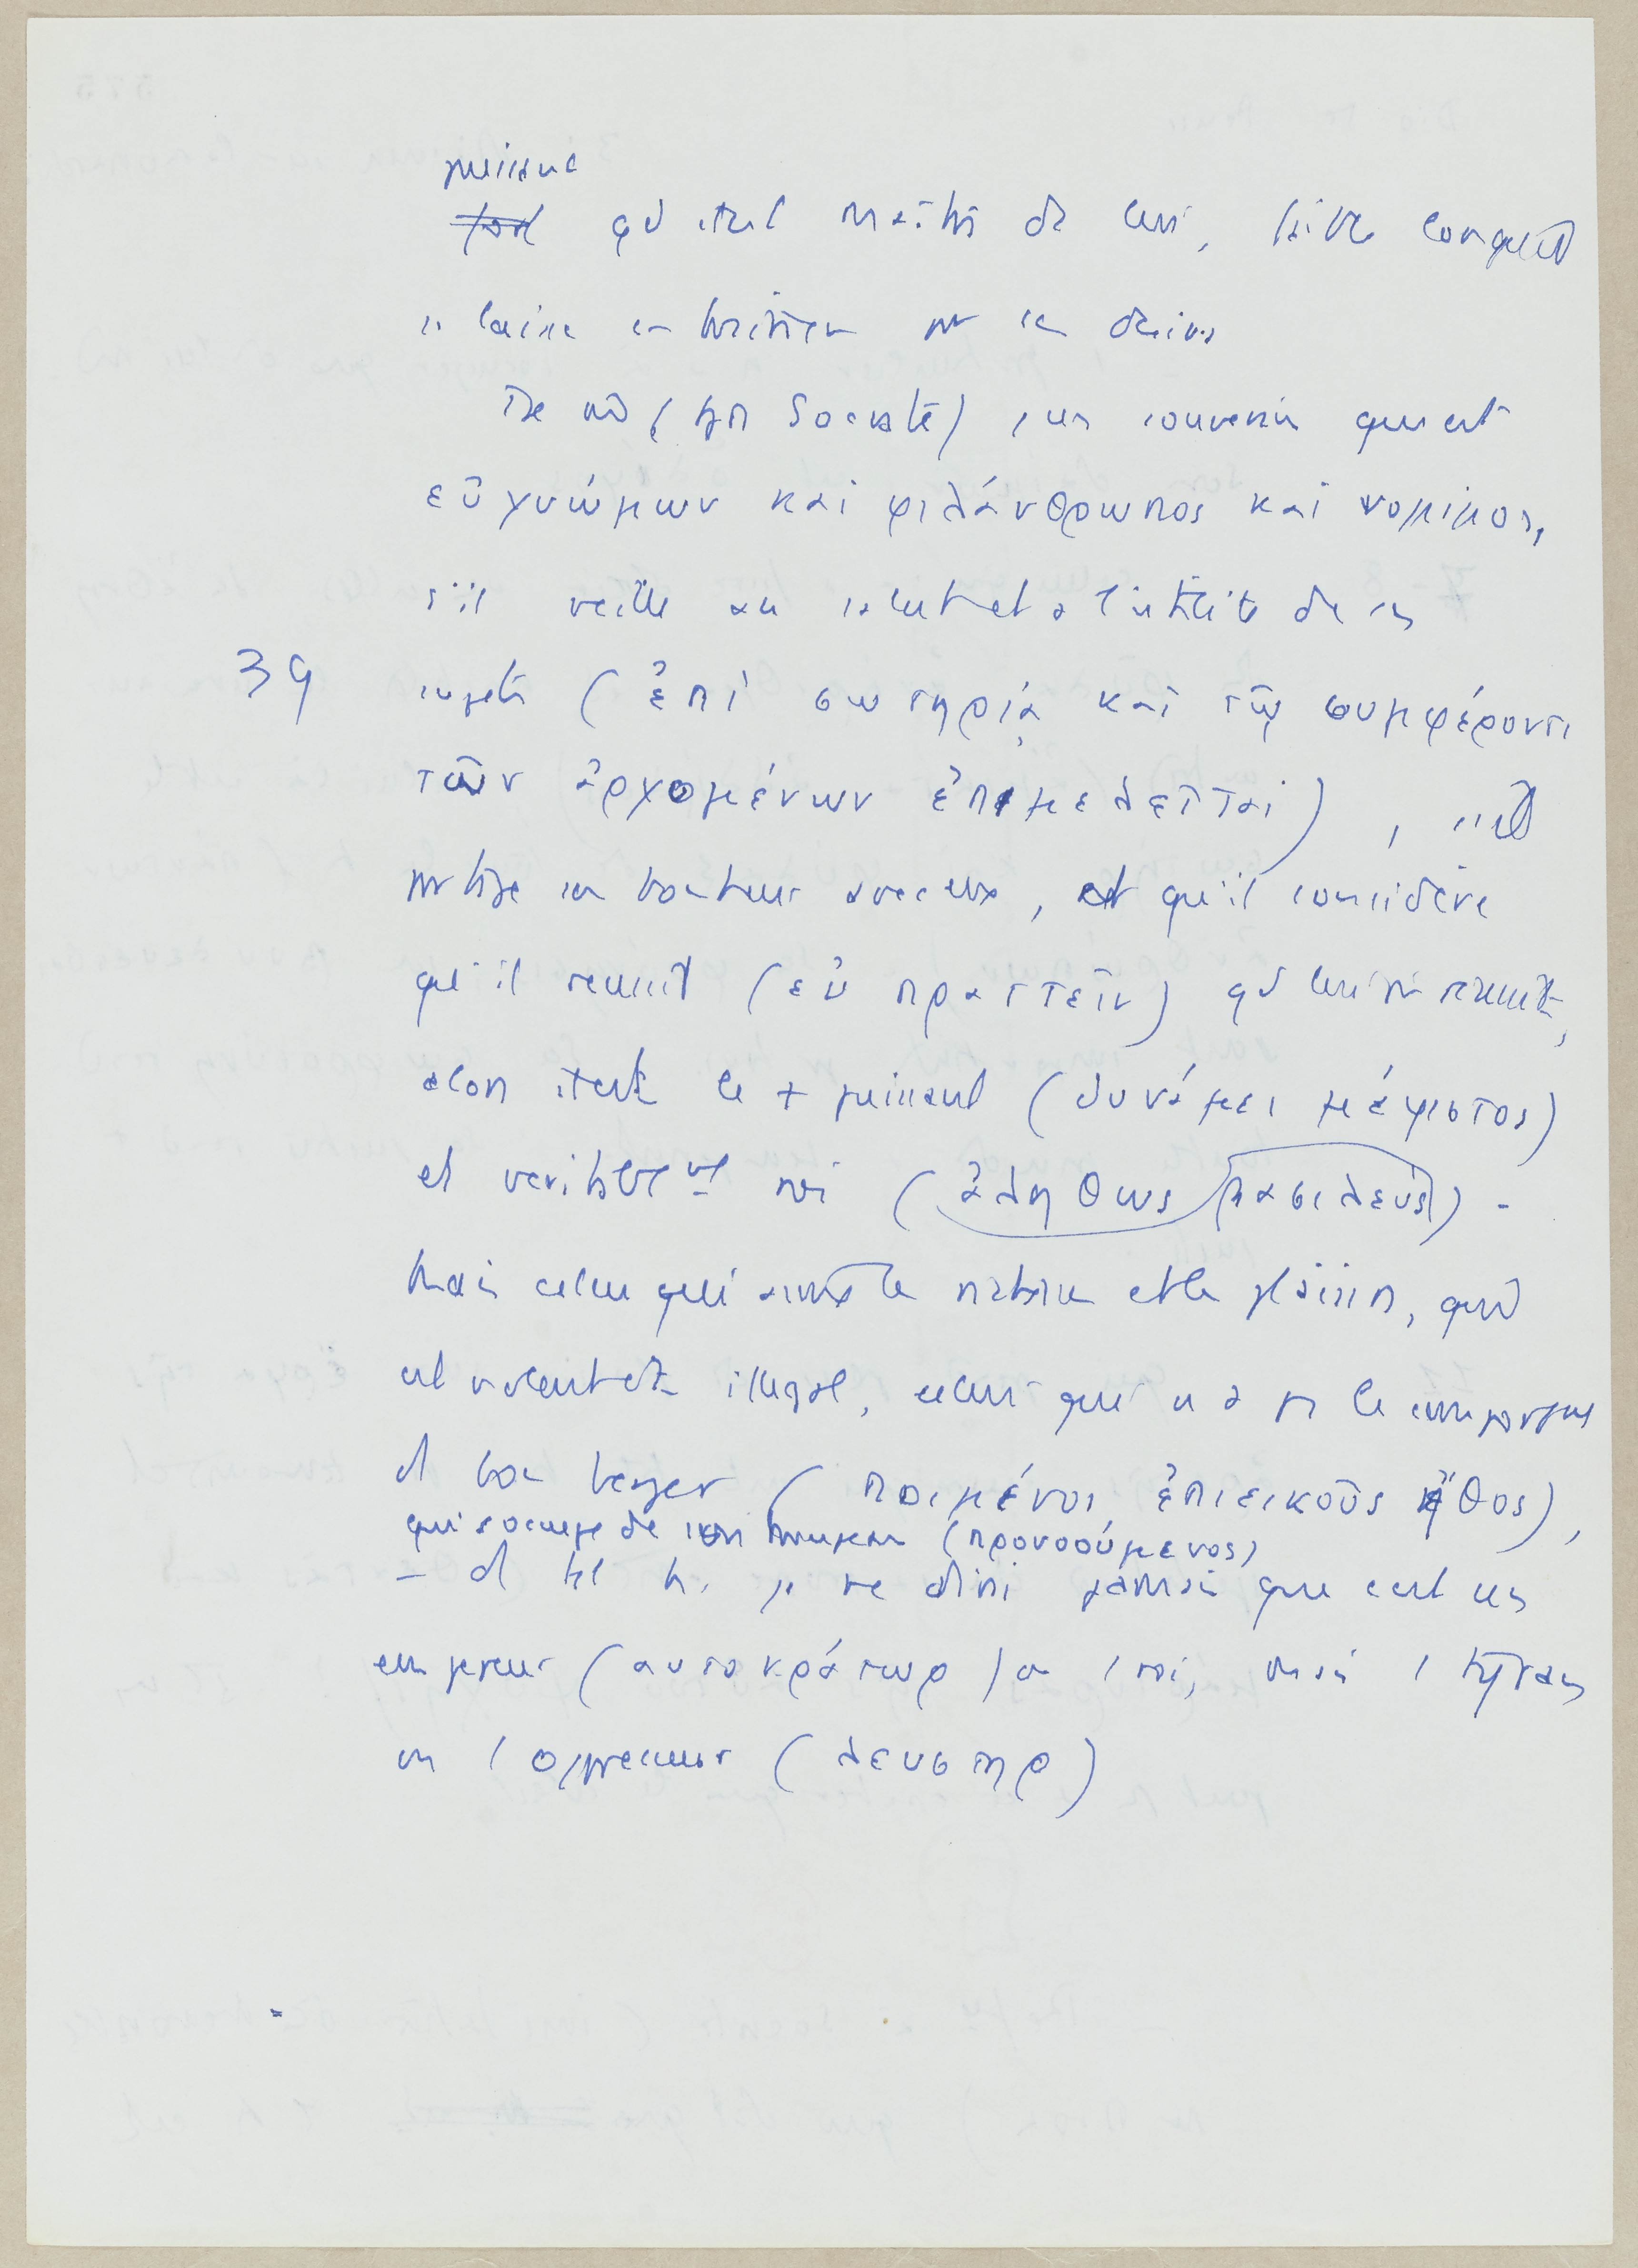 puissant
fort qd il est maître de lui, faible lorsqu'il
se laisse entraîner par ses désirs
De mê (dit Socrate) 1 un souverain qui est
εὐγνώμων καὶ φιλάνθρωπος καὶ νομιμος,
s'il veille au salut et a l'utilité de ses
39 sujets (ἐπὶ σωτηρίᾳ καὶ τῷ συμφέροντι
τῶν ἀρχομένων ἐπιμελεῖται), s'il
partage son bonheur avec eux, et qu'il considère
qu'il reussit (εὖ πραττεῖν) qd eux reussit,
alors il est le + puissant (δυνάμει μέγιστος)
et veritablemt roi (ἀληθως βασιλεύς).
Mais celui qui aime le et le plaisir, qui
est violent et illegal, celui qui n a pas le
d bon berger (ποιμένος ἐπιεικοῦς ἦθος),
qui s occupe de son troupeau (προνοούμενος)
– d tel h. je ne dirai jamais que c est un
empereur (αυτοκράτωρ) ou 1 roi, mais 1 tyran
ou 1 oppresseur (λευστηρ)